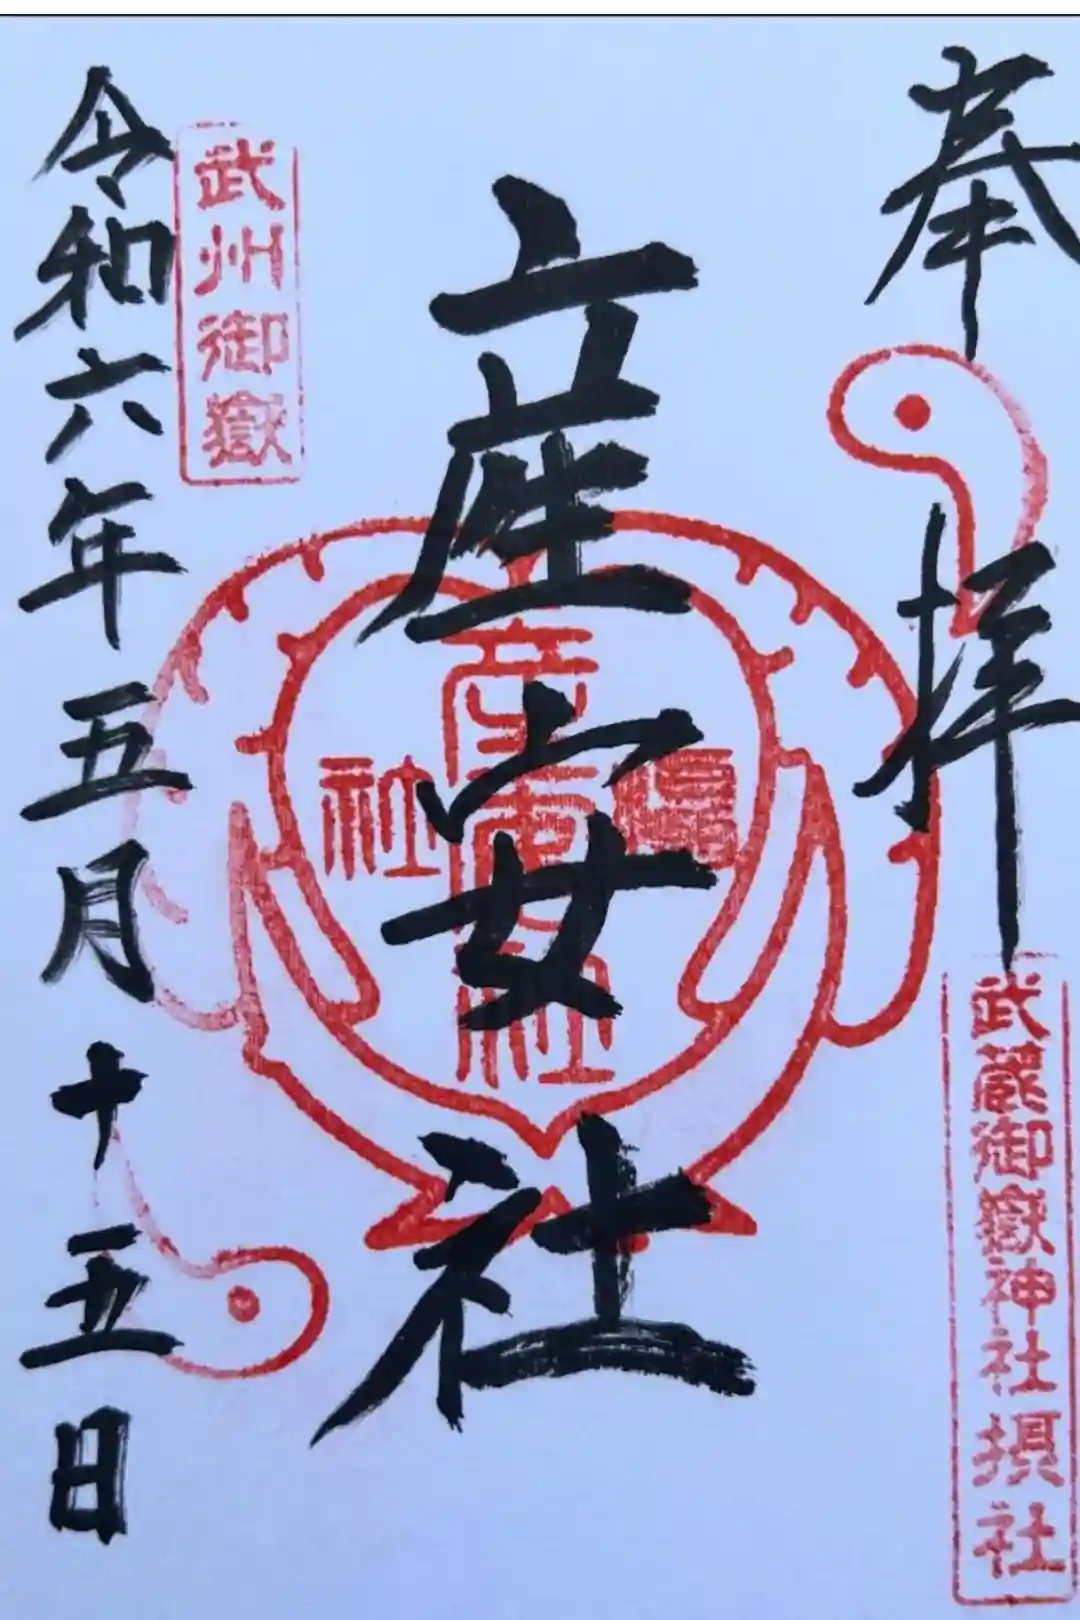 奉拝
武蔵御嶽神社摂社
産安社
摂社
産安社
武州御嶽
令和六年五月十五日